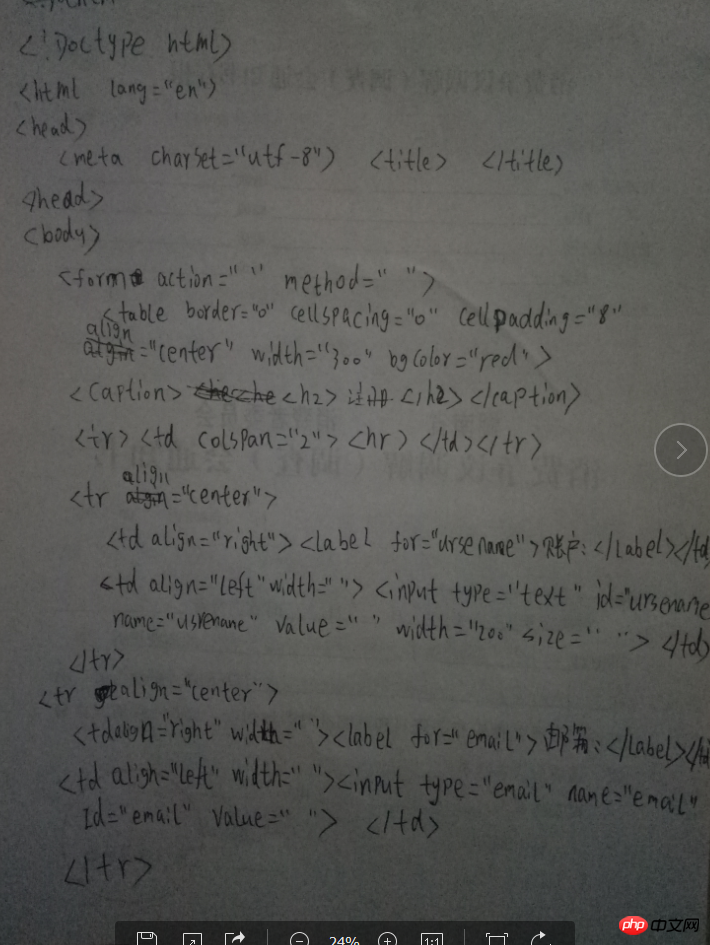 <!Doctype html>
<html lang="en">
<head>
<meta charset="utf-8"> <title> </title>
</head>
<body>
<form action=" " method=" ">
<table border="0" cellspacing="0" cellpadding="8"
align="center" width="300" bgcolor="red">
<caption> <h2> 注册 </h2> </caption>
<tr> <td colspan="2"> <hr> </td></tr>
<tr align="center">
<td align="right"> <label for="ursename">账户:</label></td
<td align="left" width=" "> <input type="text" id="ursename
name="usrename" value=" " width="200" size=" "> </td>
</tr>
<tr align="center">
<td align="right" width=" "><label for="email">邮箱:</label></td
<td aligh="left" width=" "><input type="email" name="email"
Id="email" value=" "> </td>
</tr>
24% 1:1
php 中文网